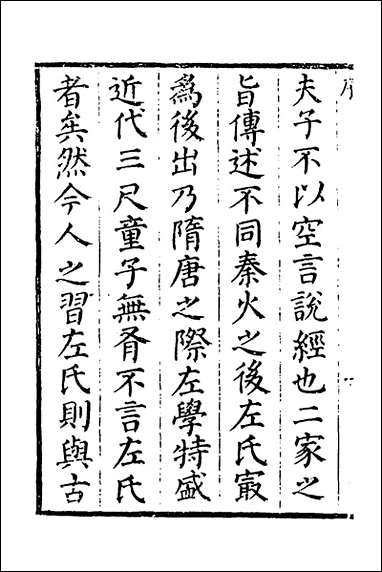 夫子不以空言說經也二家之
旨傳述不同秦火之後左氏㝡
爲後出乃隋唐之際左學特盛
近代三尺童子無有不言左氏
者矣然今人之習左氏則與古